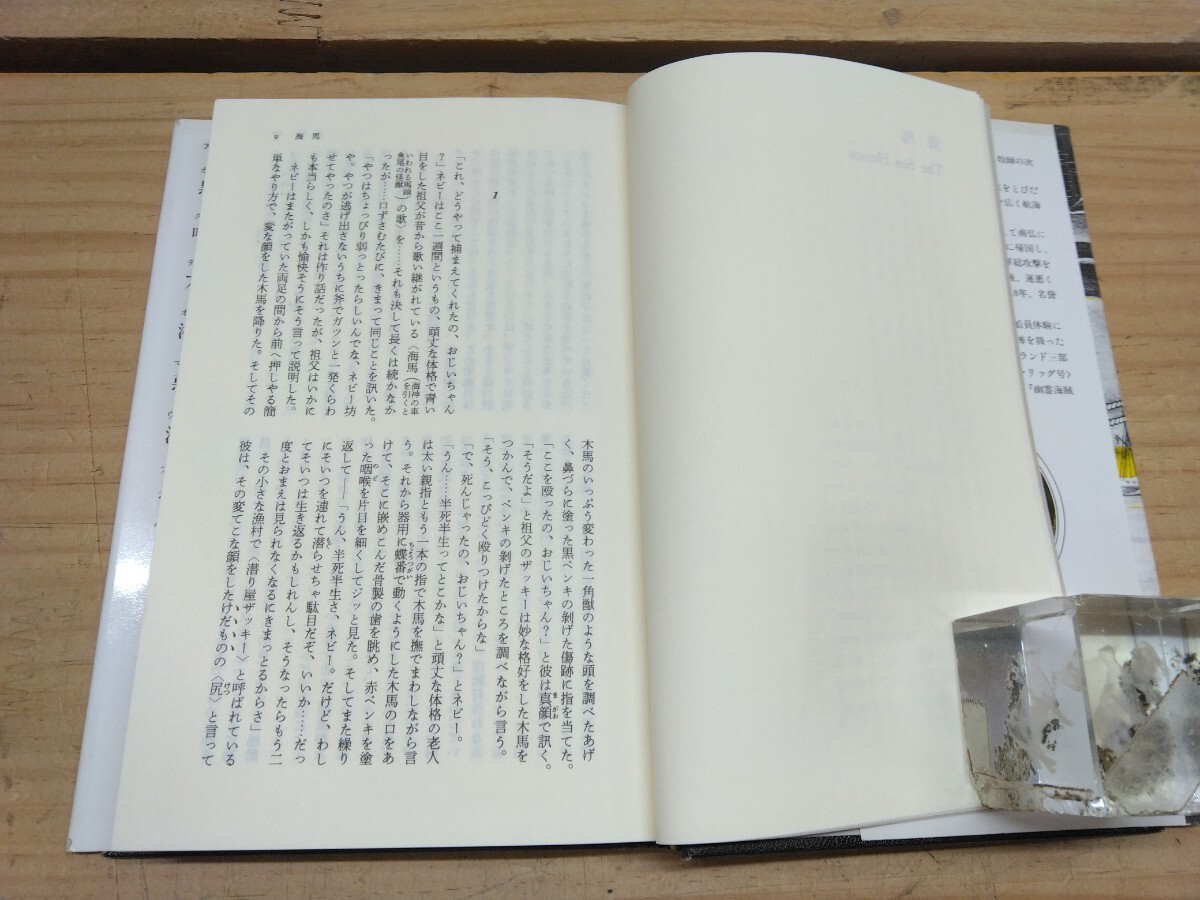 9 海馬
1
「これ、どうやって捕まえてくれたの、おじいちゃん
?」ネビーはここ一週間というもの、頑丈な体格で青い
目をした祖父が昔から歌い継がれている〈海馬(海神の車を引くと
いわれる馬頭魚尾の怪獣)の歌〉を……それも決して長くは続かなか
ったが……口ずさむたびに、きまって同じことを訊いた。
「やつはちょっぴり弱っとったらしいんでな、ネビー坊
や。やつが逃げ出さないうちに斧でガツンと一発くらわ
せてやったのさ」それは作り話だったが、祖父はいかに
も本当らしく、しかも愉快そうにそう言って説明した。
ネビーはまたがっていた両足の間から前へ押しやる簡
単なやり方で、変な顔をした木馬を降りた。そしてその
木馬のいっぷう変わった一角獣のような頭を調べたあげ
く、鼻づらに塗った黒ペンキの剝げた傷跡に指を当てた。
「ここを殴ったの、おじいちゃん?」と彼は真顔で訊く。
「そうだよ」と祖父のザッキーは妙な格好をした木馬を
つかんで、ペンキの剝げたところを調べながら言う。
「そう、こっぴどく殴りつけたからな」
「で、死んじゃったの、おじいちゃん?」とネビー。
「うん……半死半生ってとこかな」と頑丈な体格の老人
は太い親指ともう一本の指で木馬を撫でまわしながら言
う。それから器用に蝶番で動くようにした木馬の口をあ
けて、そこに嵌めこんだ骨製の歯を眺め、赤ペンキを塗
った咽喉を片目を細くしてジッと見た。そしてまた繰り
返して――「うん、半死半生さ、ネビー。だけど、わし
にそいつを連れて潜らせちゃ駄目だぞ、いいか……だっ
てそいつは生き返るかもしれんし、そうなったらもう二
度とおまえは見られなくなるにきまっとるからさ」
その小さな漁村で〈潜り屋ザッキー〉と呼ばれている
彼は、その変てこな顔をしたけだものの〈尻〉と言って
海馬
The Sea Horses
牧師の次
をとびだ
広く航海
して南仏に
に帰国し、
軍総攻撃を
後、運悪く
8年、名誉
船員体験に
海を扱った
ランド三部
ンリッグ号〉
『幽霊海賊